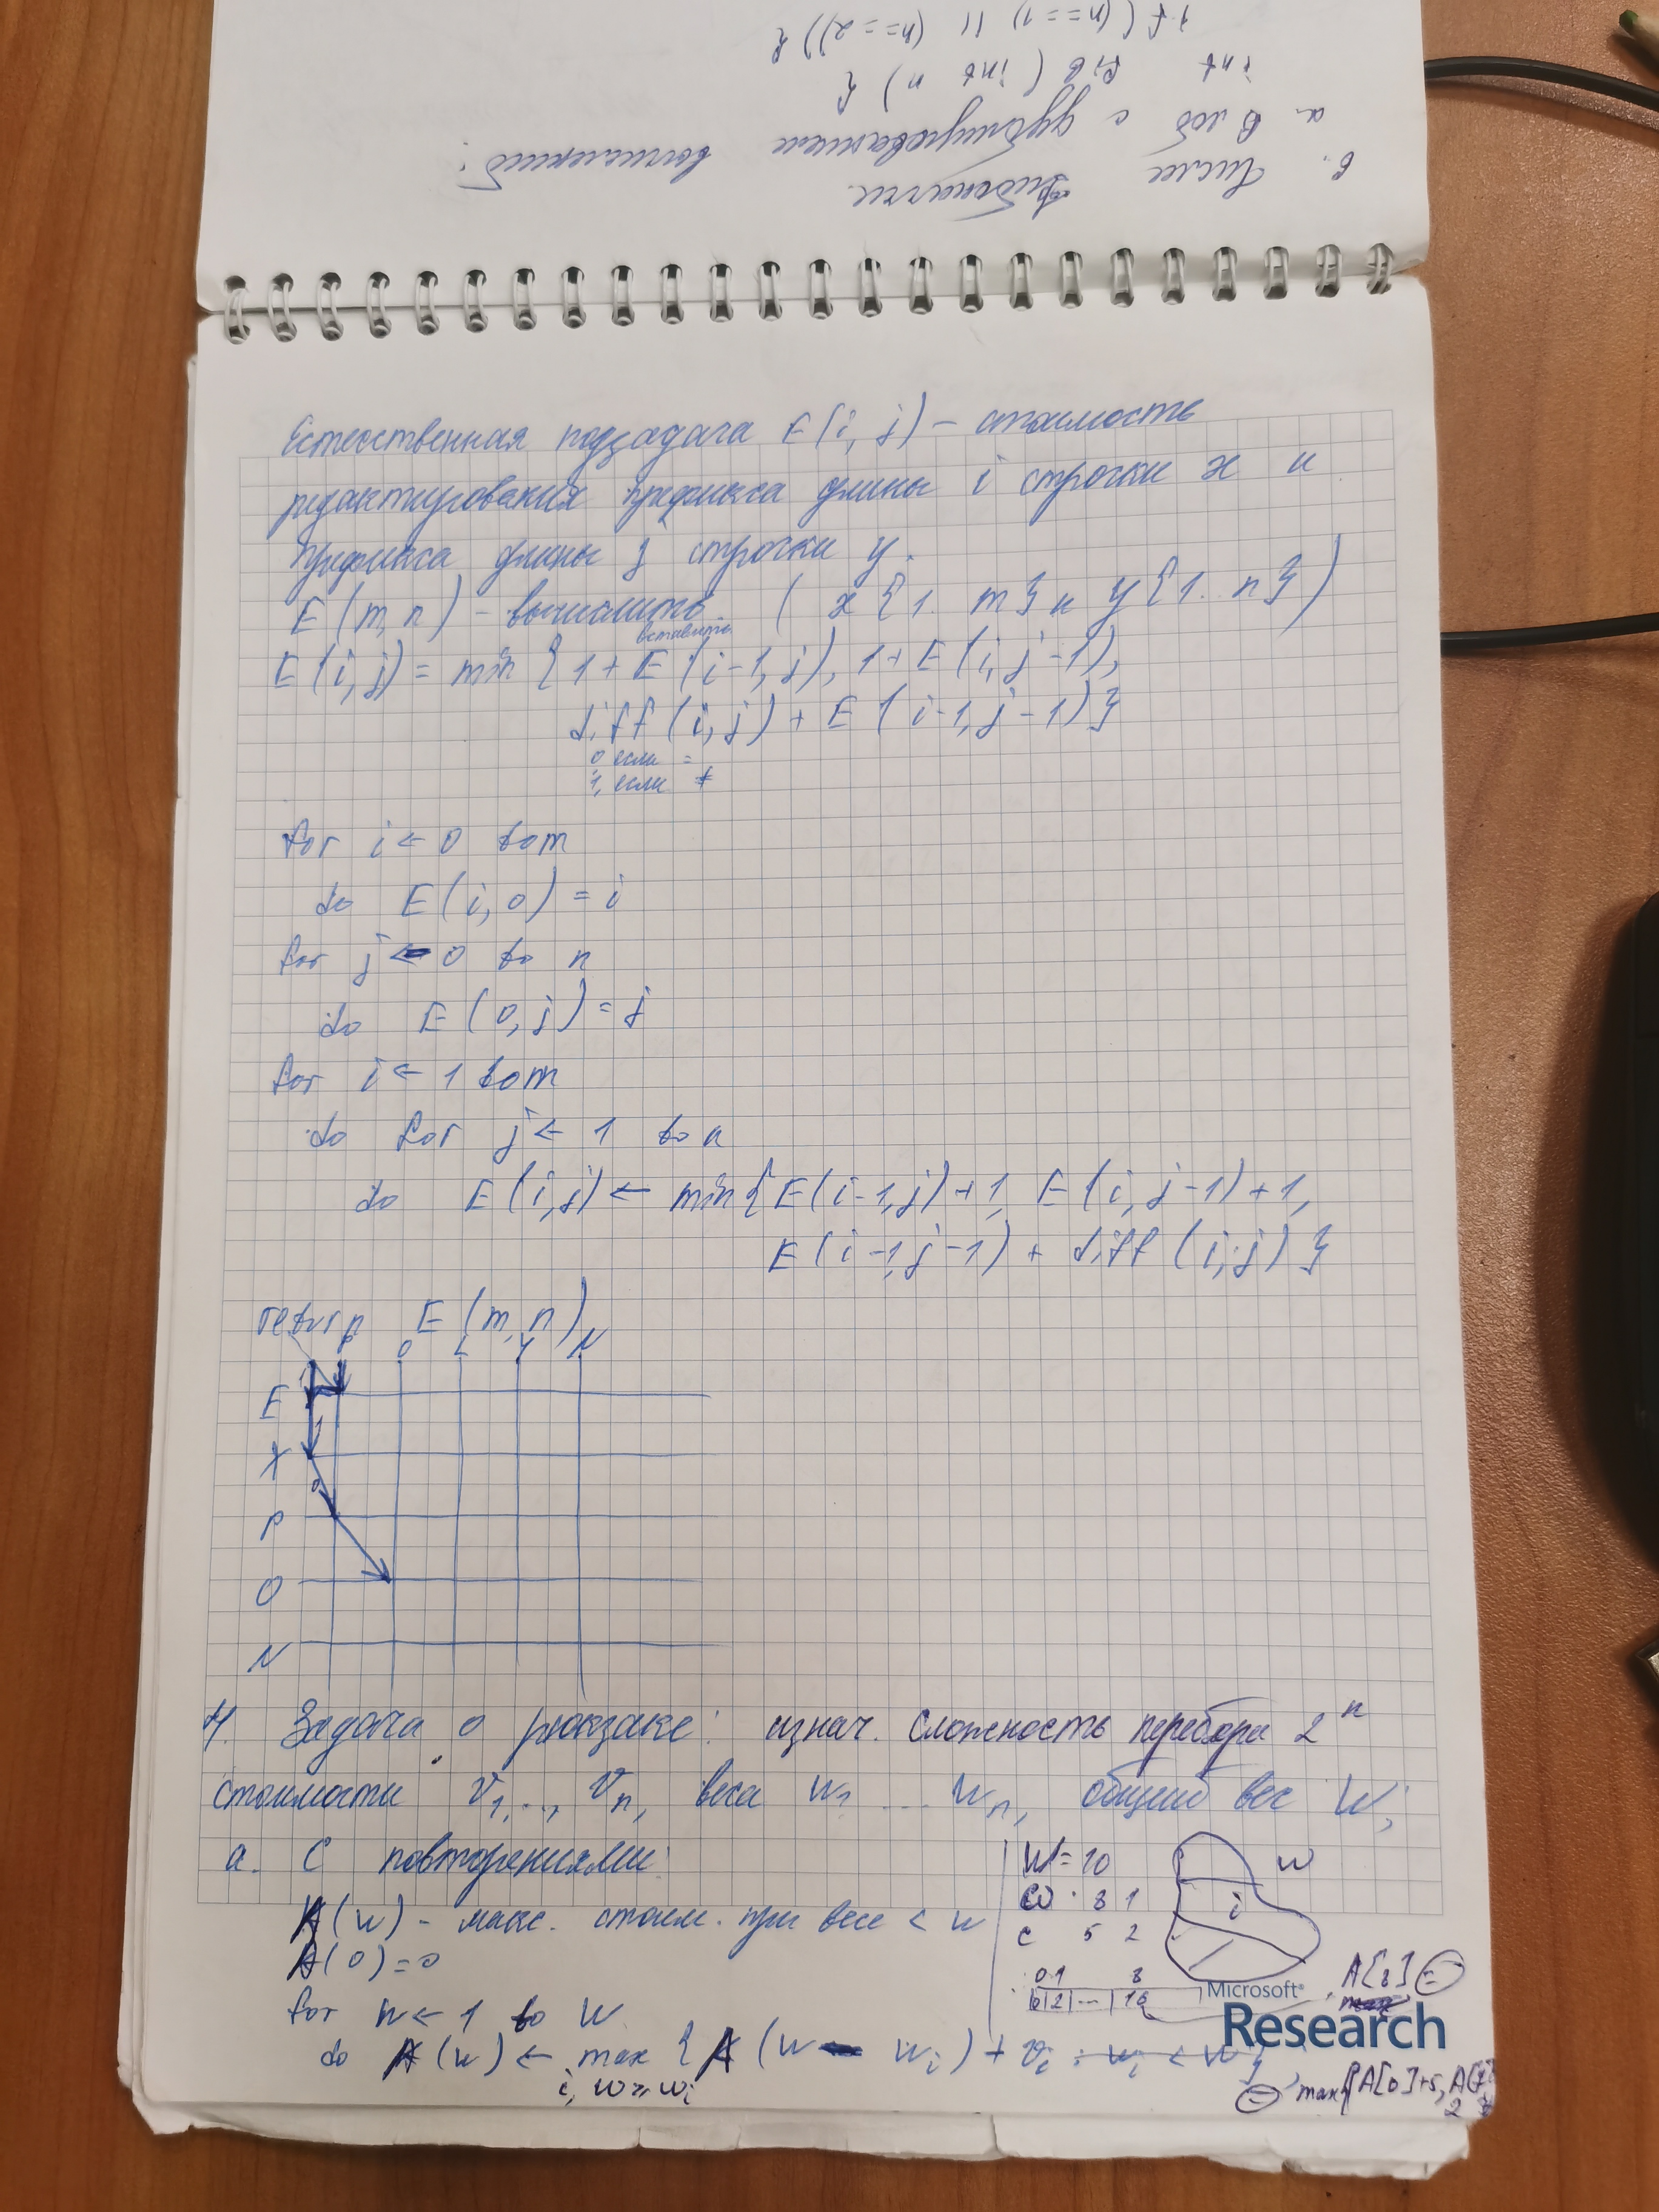 if ((n==1) || (n==2)) {
int fib (int n) {
а. В лоб с дублированием вычислений:
6. Числа Фибоначчи.
Естественная подзадача E(i, j) – стоимость
редактирования префикса длины i строчки x и
префикса длины j строчки y.
E(m, n) – вычислить. ( x{1.. m} и y{1.. n} )
вставить
E(i, j) = min {1 + E(i-1, j), 1 + E(i, j-1),
diff(i, j) + E(i-1, j-1)}
0 если =
1, если ≠
for i ← 0 to m
do E(i, 0) = i
for j ← 0 to n
do E(0, j) = j
for i ← 1 to m
do for j ← 1 to n
do E(i, j) ← min{E(i-1, j) + 1, E(i, j-1) + 1,
E(i-1, j-1) + diff(i, j)}
return E(m, n)
P O L Y N
E
X
P
O
N
4. Задача о рюкзаке: изнач. сложность перебора 2ⁿ
стоимости v₁,..., vₙ, веса w₁ ... wₙ, общий вес W;
а. С повторениями:
A(w) – макс. стоим. при весе < w
A(0) = 0
for w ← 1 to W
do A(w) ← max {A(w - wᵢ) + vᵢ : wᵢ < w}
i, w ≥ wᵢ
W = 10
ω 8 1
c 5 2
w
i
0 1 8
0|2|...|16
A[8] =
Microsoft®
Research
= max{A[0]+5, A[7]
2